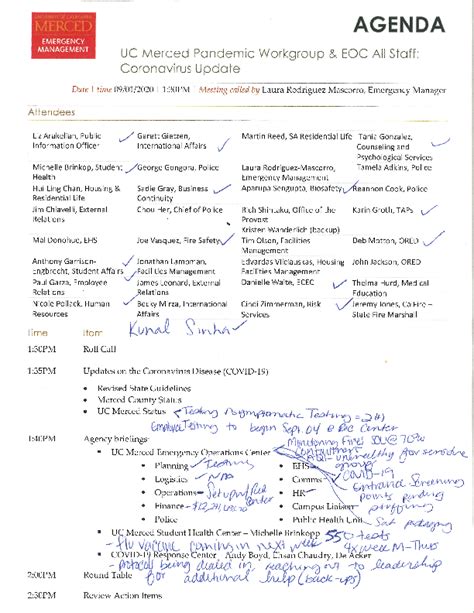 UNIVERSITY OF CALIFORNIA
MERCED
EMERGENCY
MANAGEMENT
AGENDA
UC Merced Pandemic Workgroup & EOC All Staff:
Coronavirus Update
Date | time 09/01/2020 | 1:30PM Meeting called by Laura Rodriguez Mascorro, Emergency Manager
Attendees
Liz Arakelian, Public Information Officer
Garett Gietzen, International Affairs
Martin Reed, SA Residential Life
Tania Gonzalez, Counseling and Psychological Services
Michelle Brinkop, Student Health
George Gongora, Police
Laura Rodriguez-Mascorro, Emergency Management
Tamela Adkins, Police
Hui Ling Chan, Housing & Residential Life
Sadie Gray, Business Continuity
Aparupa Sengupta, Biosafety
Reannon Cook, Police
Jim Chiavelli, External Relations
Chou Her, Chief of Police
Rich Shintaku, Office of the Provost
Kristen Wanderlich (backup)
Karin Groth, TAPs
Mal Donohue, EHS
Joe Vasquez, Fire Safety
Tim Olsen, Facilities Management
Deb Motton, ORED
Anthony Garrison-Engbrecht, Student Affairs
Jonathan Lampman, Facilities Management
Edvardas Vilalauskas, Housing Facilities Management
John Jackson, ORED
Paul Garza, Employee Relations
James Leonard, External Relations
Danielle Waite, ECEC
Thelma Hurd, Medical Education
Nicole Pollack, Human Resources
Becky Mirza, International Affairs
Cindi Zimmerman, Risk Services
Jeremy Jones, Ca Fire – State Fire Marshall
Kunal Sinha
Time Item
1:30PM Roll Call
1:35PM Updates on the Coronavirus Disease (COVID-19)
• Revised State Guidelines
• Merced County Status
• UC Merced Status
Testing Asymptomatic Testing = 2(+)
Employee Testing to begin Sept. 04 @ Rec Center
Monitoring Fires
1:40PM Agency Briefings:
• UC Merced Emergency Operations Center
AQI - unhealthy for sensitive group
• Planning Testing
• EHS
• Logistics
• Comms COVID-19
• Operations
• HR
Entrance Screening points pending staffing
• Finance
• Campus Liaison
• Police
• Public Health Unit
• UC Merced Student Health Center – Michelle Brinkopp 550 tests
4x week M-Thurs
- Flu vaccine coming in next week
• COVID-19 Response Center – Andy Boyd, Ensan Chaudry, De Acker
- protocol being dialed in reaching out to leadership
for additional help (back-ups)
2:00PM Round Table
2:30PM Review Action Items